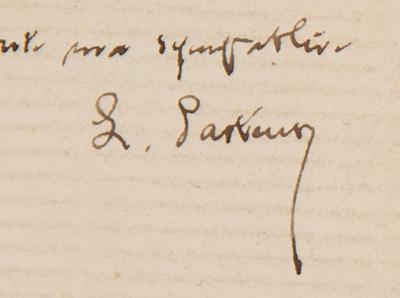 toute ma sympathie
L. Pasteur